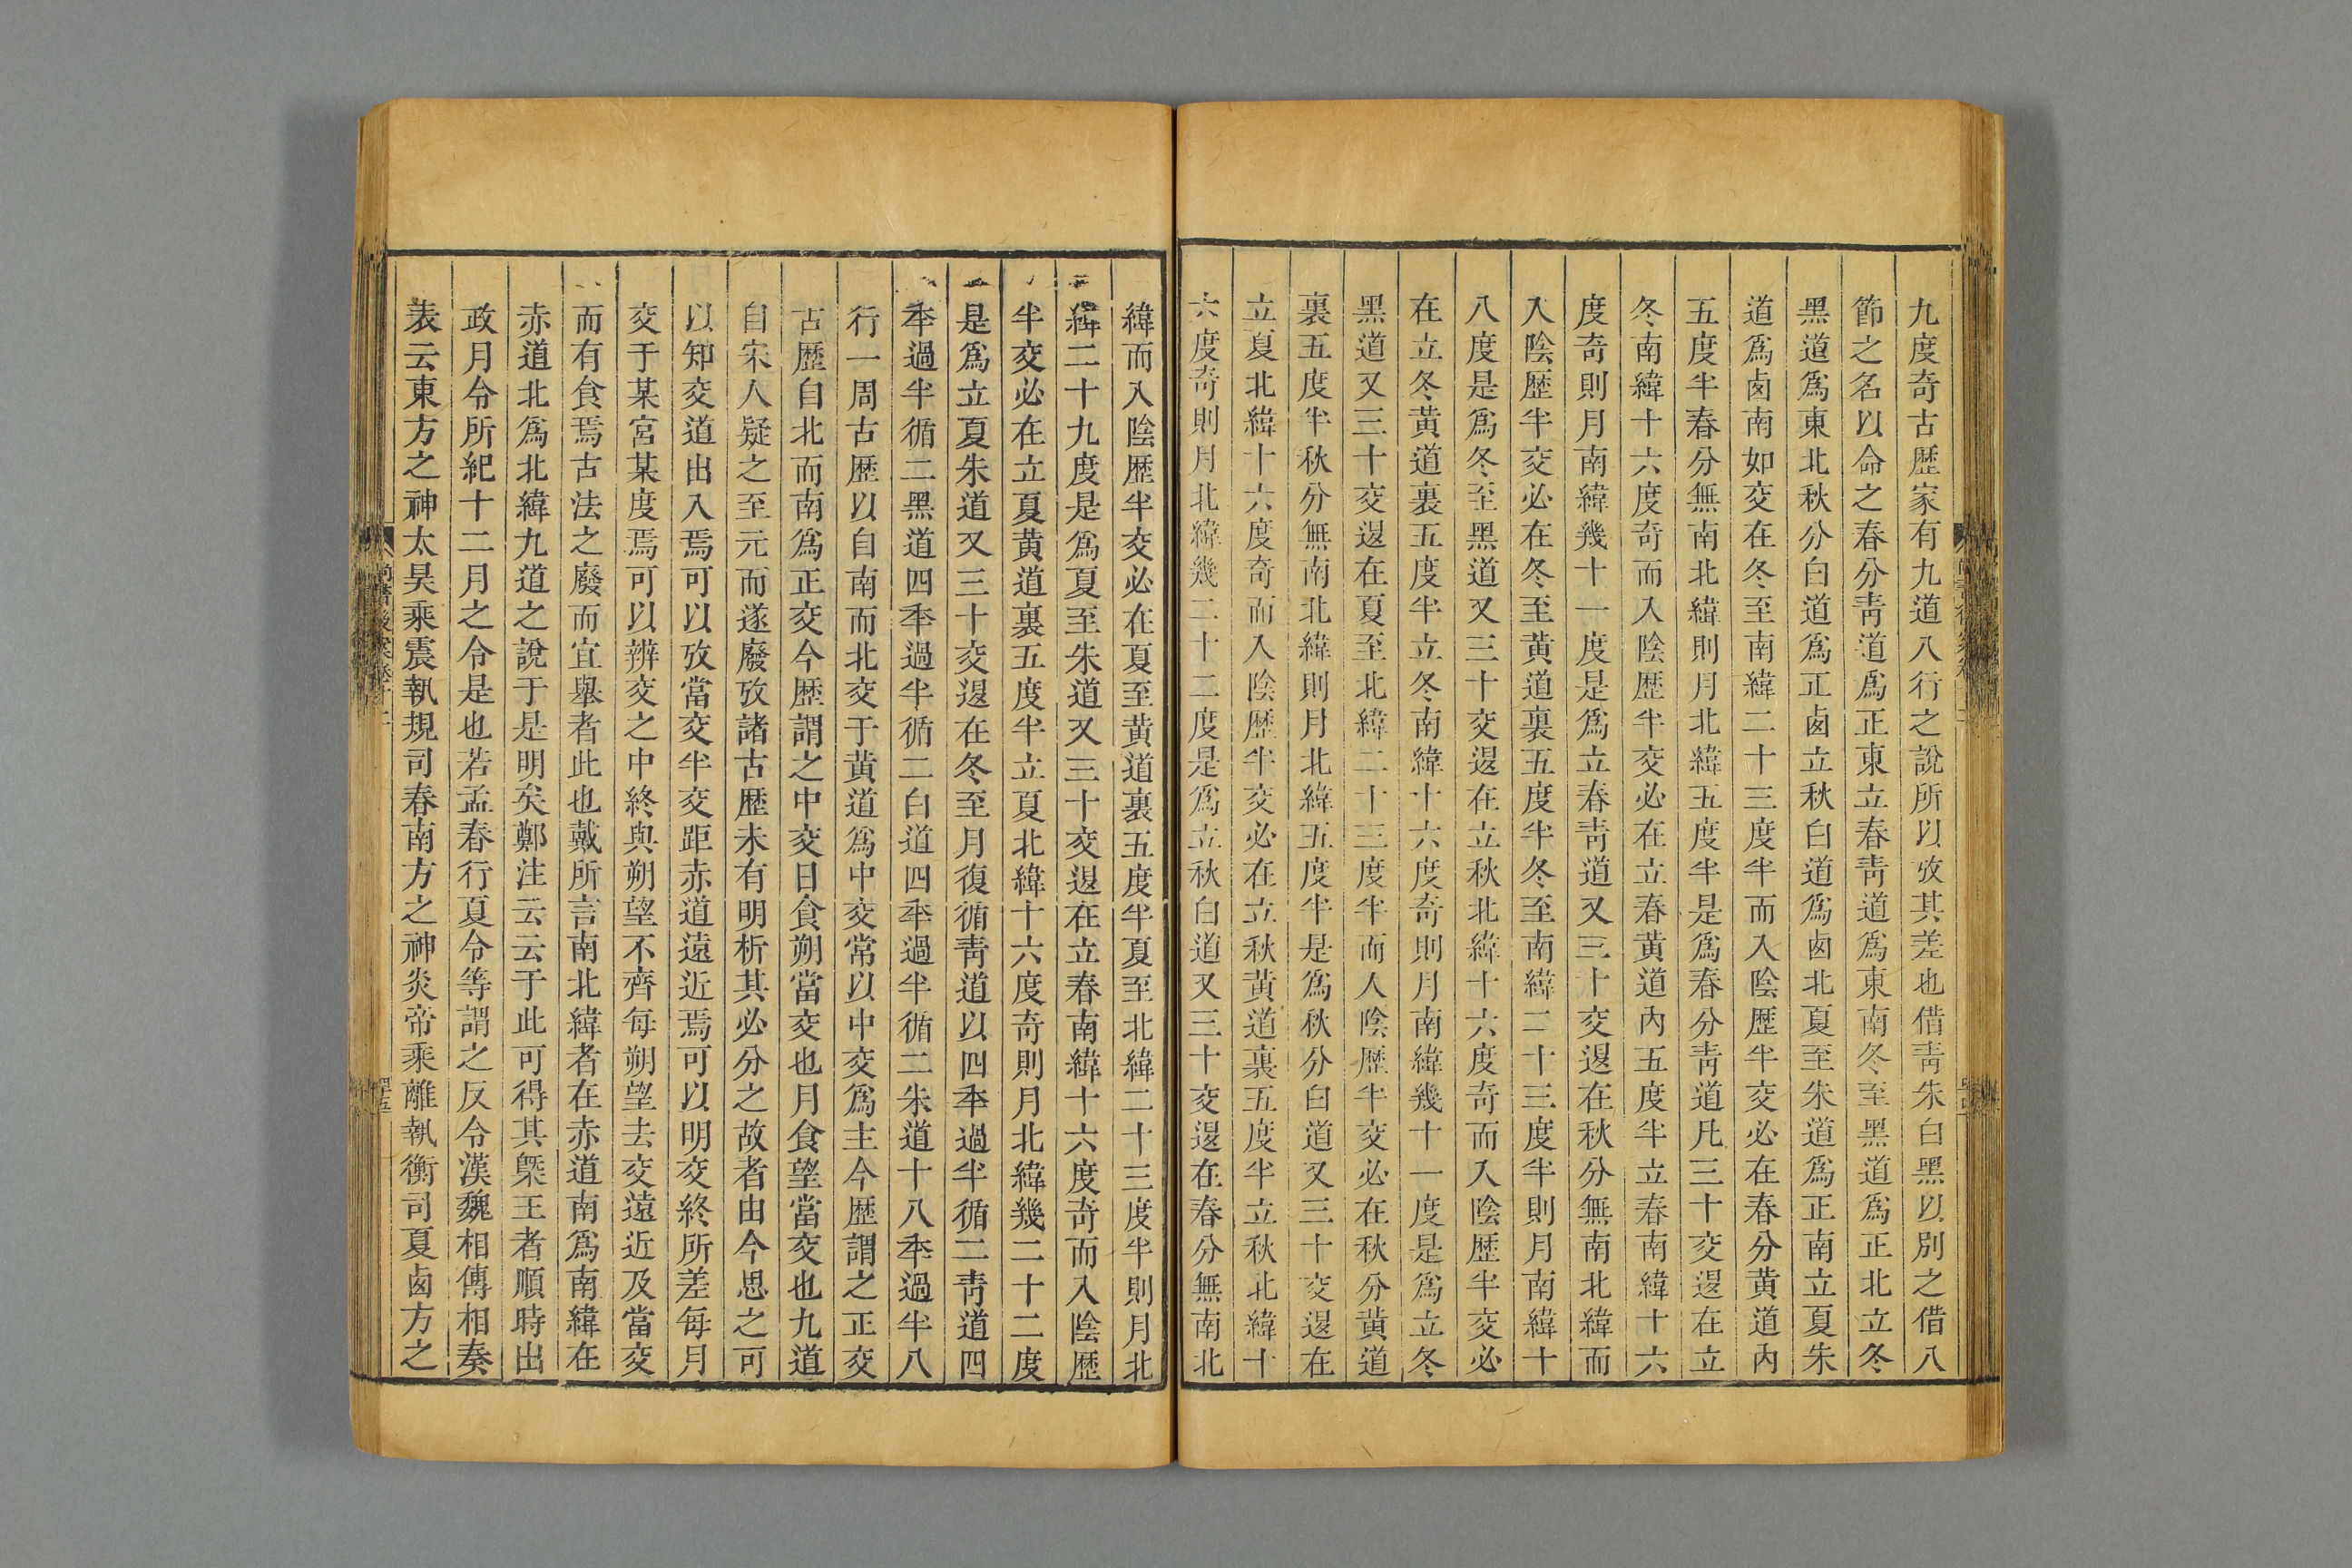 九度奇古歷家有九道八行之說所以攷其差也借靑朱白黑以別之借八
節之名以命之春分靑道爲正東立春靑道爲東南冬至黑道爲正北立冬
黑道爲東北秋分白道爲正卤立秋白道爲卤北夏至朱道爲正南立夏朱
道爲卤南如交在冬至南緯二十三度半而入陰歷半交必在春分黃道內
五度半春分無南北緯則月北緯五度半是爲春分靑道凡三十交退在立
冬南緯十六度奇而入陰歷半交必在立春黃道內五度半立春南緯十六
度奇則月南緯幾十一度是爲立春靑道又三十交退在秋分無南北緯而
入陰歷半交必在冬至黃道裏五度半冬至南緯二十三度半則月南緯十
八度是爲冬至黑道又三十交退在立秋北緯十六度奇而入陰歷半交必
在立冬黃道裏五度半立冬南緯十六度奇則月南緯幾十一度是爲立冬
黑道又三十交退在夏至北緯二十三度半而入陰歷半交必在秋分黃道
裏五度半秋分無南北緯則月北緯五度半是爲秋分白道又三十交退在
立夏北緯十六度奇而入陰歷半交必在立秋黃道裏五度半立秋北緯十
六度奇則月北緯幾二十二度是爲立秋白道又三十交退在春分無南北
緯而入陰歷半交必在夏至黃道裏五度半夏至北緯二十三度半則月北
緯二十九度是爲夏至朱道又三十交退在立春南緯十六度奇而入陰歷
半交必在立夏黃道裏五度半立夏北緯十六度奇則月北緯幾二十二度
是爲立夏朱道又三十交退在冬至月復循靑道以四秊過半循二靑道四
秊過半循二黑道四秊過半循二白道四秊過半循二朱道十八秊過半八
行一周古歷以自南而北交于黃道爲中交常以中交爲主今歷謂之正交
古歷自北而南爲正交今歷謂之中交日食朔當交也月食望當交也九道
自宋人疑之至元而遂廢攷諸古歷未有明析其必分之故者由今思之可
以知交道出入焉可以攷當交半交距赤道遠近焉可以明交終所差每月
交于某宮某度焉可以辨交之中終與朔望不齊每朔望去交遠近及當交
而有食焉古法之廢而宜舉者此也戴所言南北緯者在赤道南爲南緯在
赤道北爲北緯九道之說于是明矣鄭注云云于此可得其槩王者順時出
政月令所紀十二月之令是也若孟春行夏令等謂之反令漢魏相傳相奏
表云東方之神太昊乘震執規司春南方之神炎帝乘離執衡司夏卤方之
尚書後案卷十二